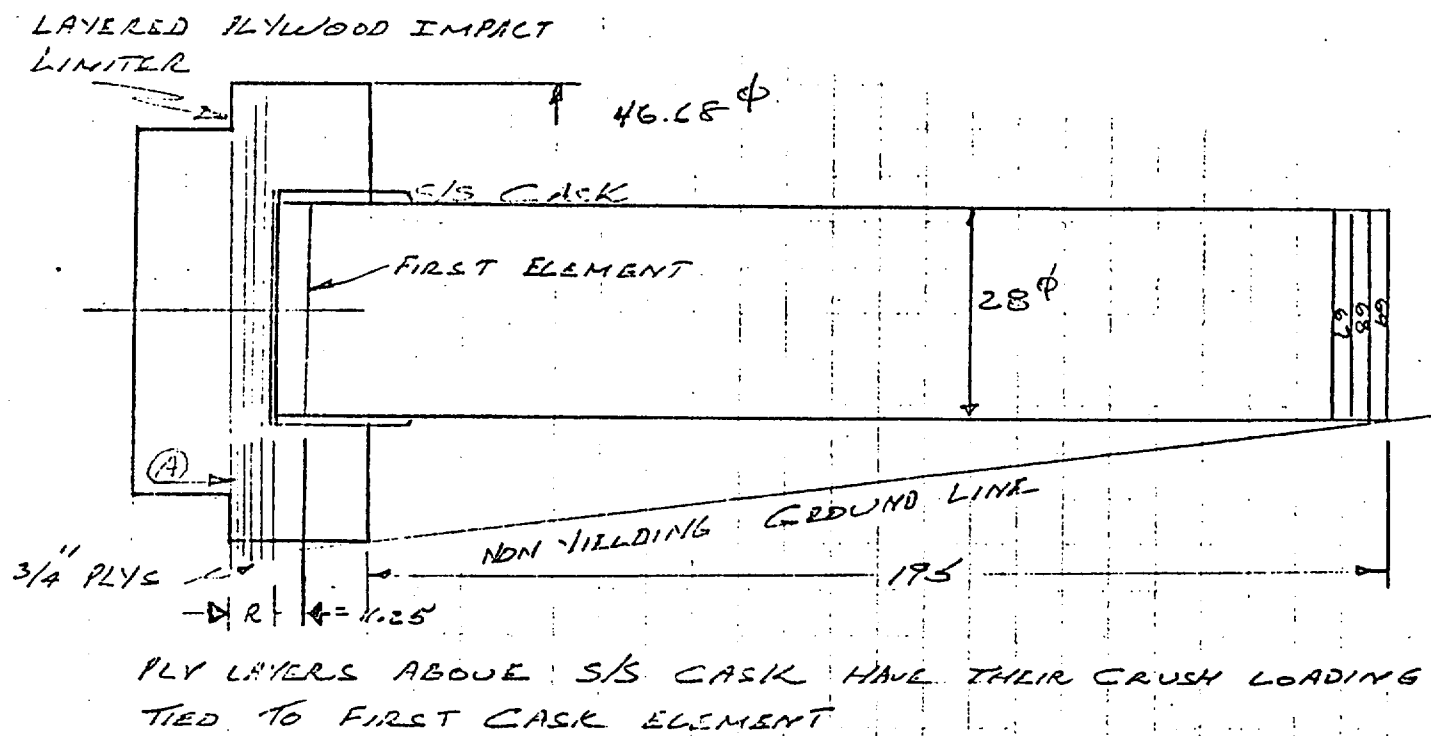 LAYERED PLYWOOD IMPACT
LIMITER
46.68 ϕ
S/S CASK
FIRST ELEMENT
28 ϕ
67
68
69
A
NON YIELDING GROUND LINE
3/4" PLYS
195
R
PLY LAYERS ABOVE S/S CASK HAVE THEIR CRUSH LOADING
TIED TO FIRST CASK ELEMENT